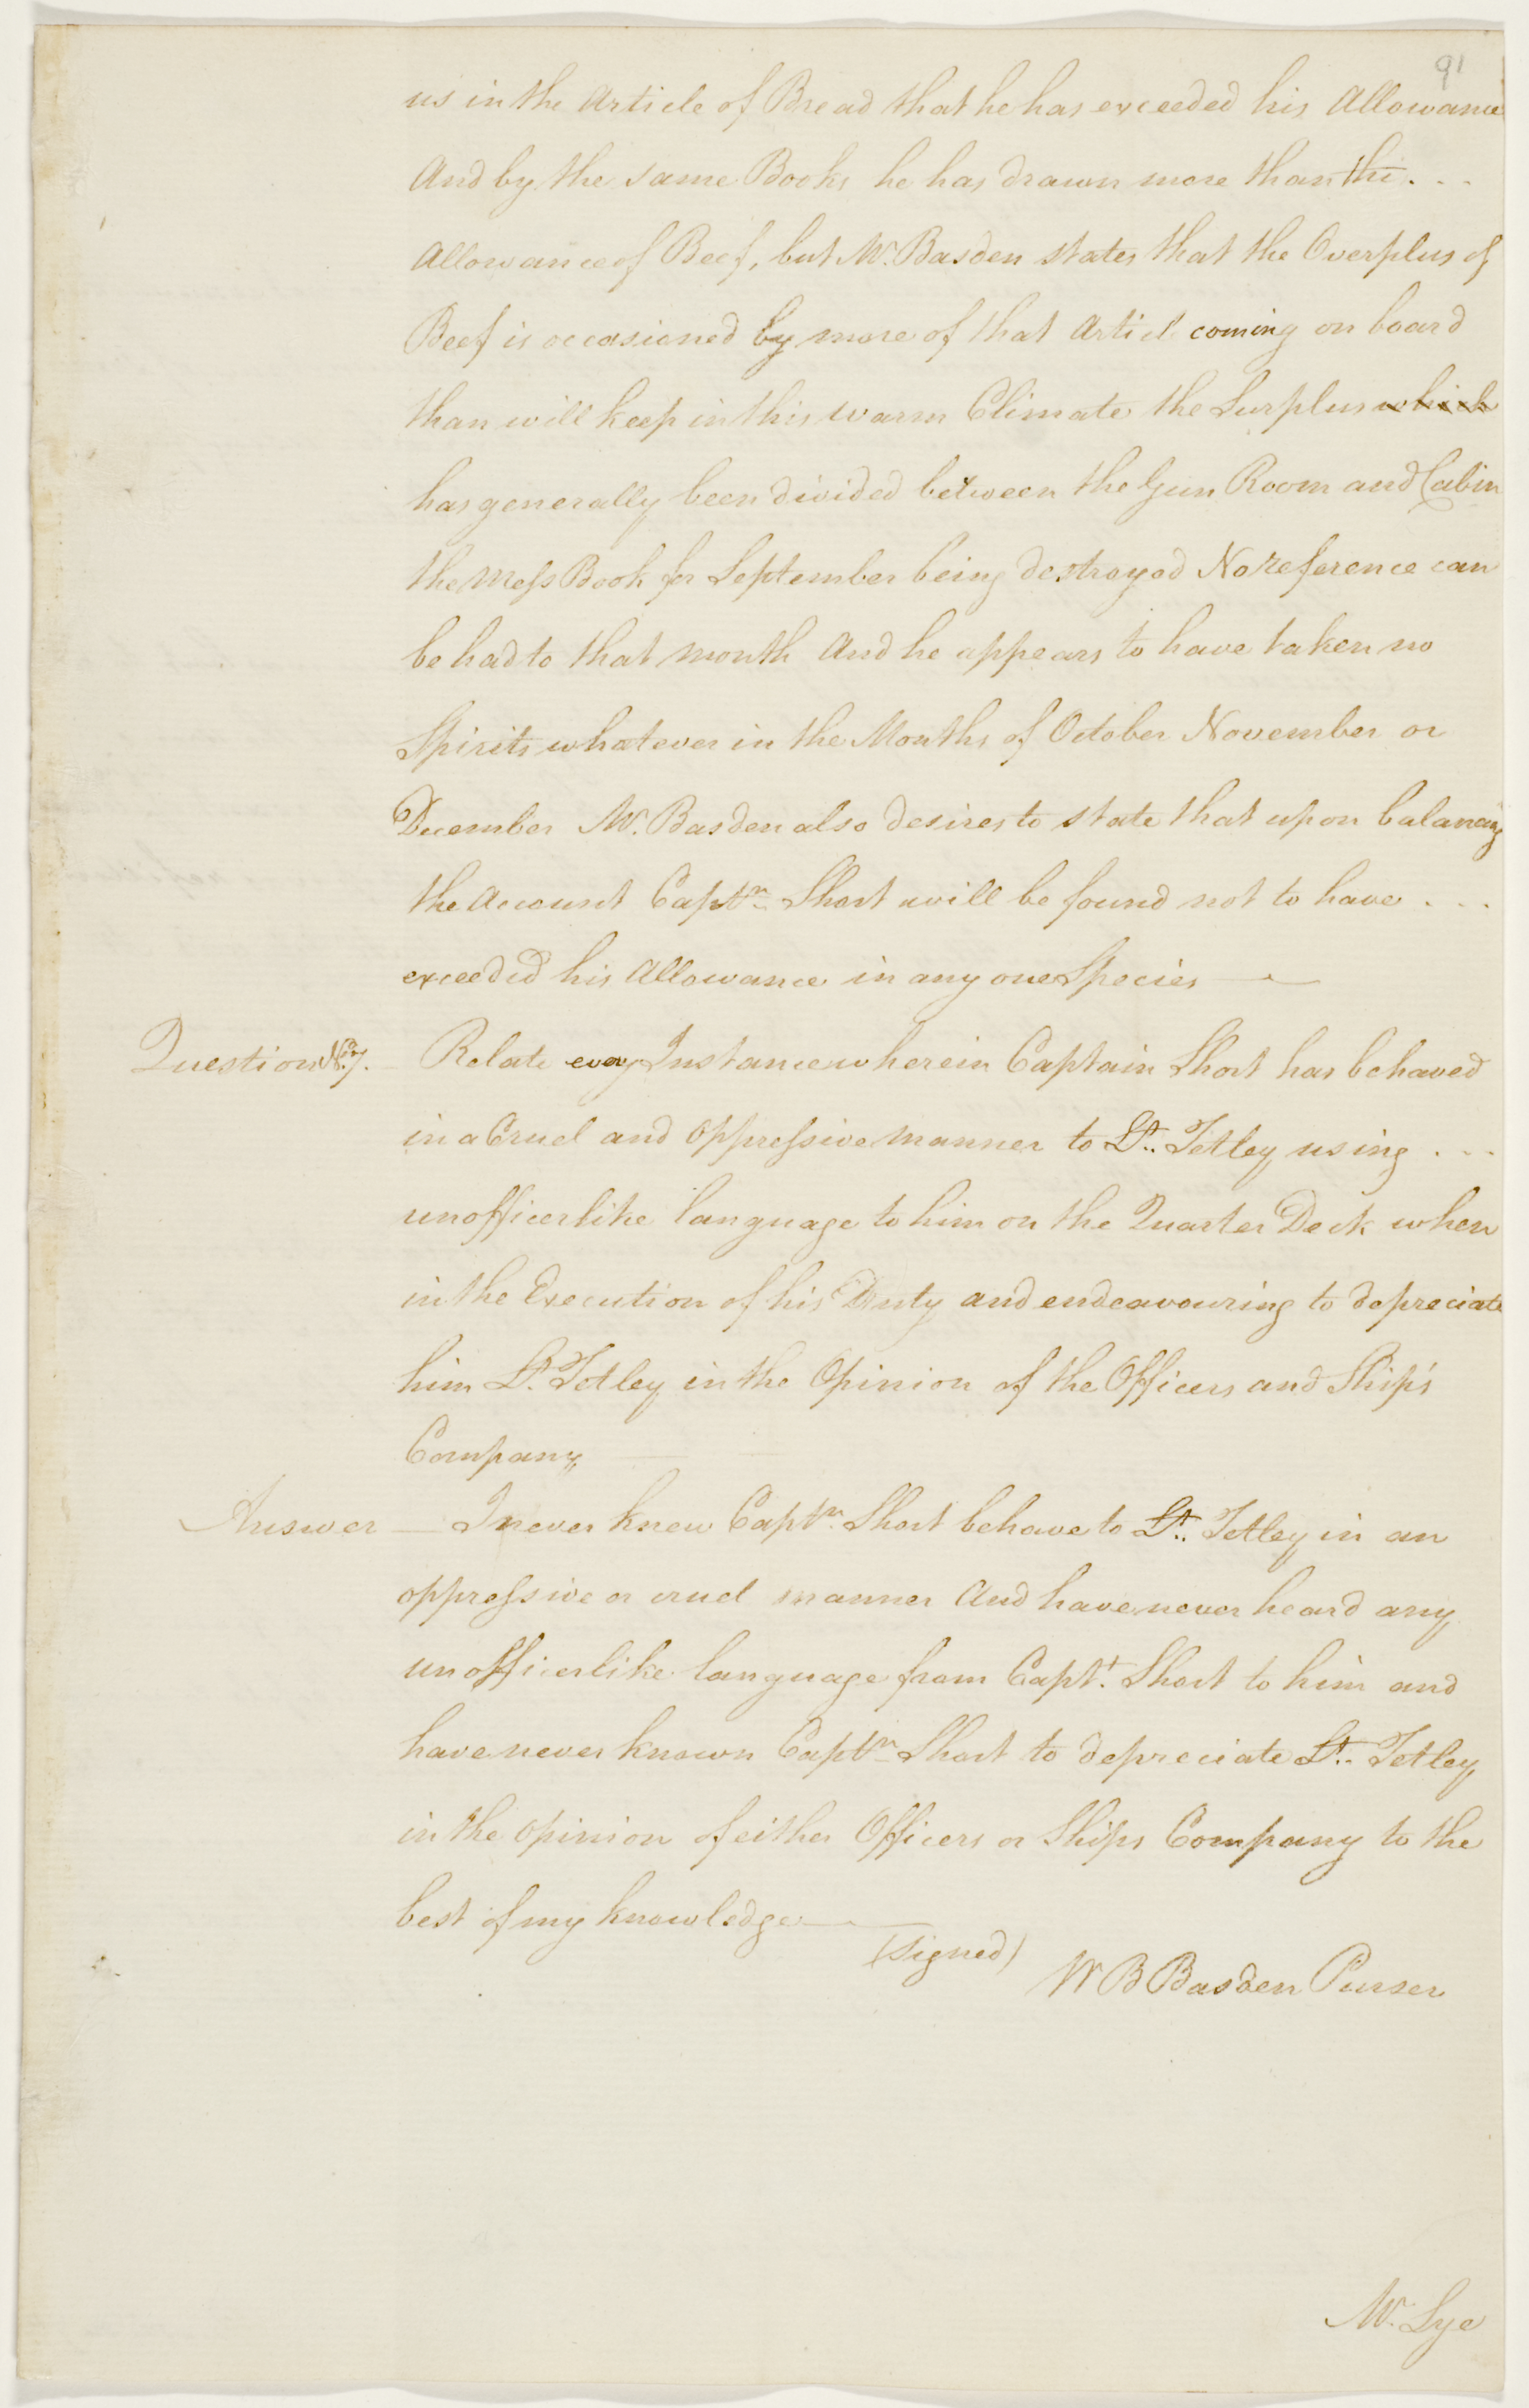 91
us in the Article of Bread that he has exceeded his Allowance
And by the same Books he has drawn more than the . . .
Allowance of Beef, but Mr. Basden states that the Overplus of
Beef is occasioned by more of that Article coming on board
than will keep in this warm Climate the Surplus which
has generally been divided between the Gun Room and Cabin
the Mess Book for September being destroyed No reference can
be had to that month And he appears to have taken no
Spirits whatever in the Months of October November or
December Mr. Basden also desires to state that upon balancing
the Account Captn. Short will be found not to have . . .
exceeded his Allowance in any one Species —
Question No. 7. Relate every Instance wherein Captain Short has behaved
in a Cruel and Oppressive manner to Lt. Tetley using . . .
unofficerlike language to him on the Quarter Deck when
in the Execution of his Duty and endeavouring to depreciate
him Lt. Tetley in the Opinion of the Officers and Ship's
Company
Answer — I never knew Captn. Short behave to Lt. Tetley in an
oppressive or cruel manner And have never heard any
unofficerlike language from Capt. Short to him and
have never known Captn. Short to depreciate Lt. Tetley
in the opinion of either Officers or Ships Company to the
best of my knowledge —
(signed) W B Basden Purser
Mr. Lye